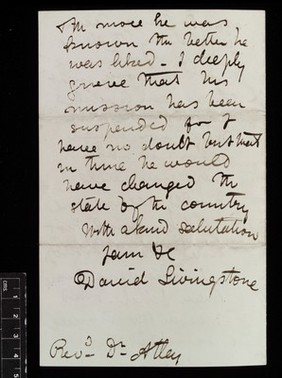 the more he was
known the better he
was liked - I deeply
grieve that his
mission has been
suspended for I
have no doubt but that
in time he would
have changed the
state of the country
with a kind salutation
I am &c
David Livingstone
Revd. Dr. Atlay